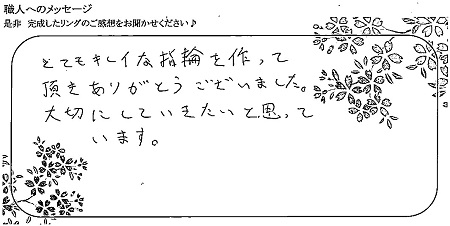 職人へのメッセージ
是非 完成したリングのご感想をお聞かせください♪
とてもキレイな指輪を作って
頂きありがとうございました。
大切にしていきたいと思って
います。